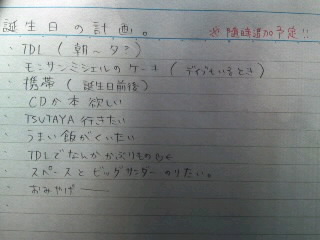 誕生日の計画。 ※随時追加予定!!
・TDL(朝〜夕?)
・モンサンミシェルのケーキ(
・携帯(誕生日前後)
・CDか本欲しい
・TSUTAYA行きたい
・うまい飯がくいたい
・TDLでなんかかぶりもの
・スペースとビッグサンダーのりたい。
・おみやげ――